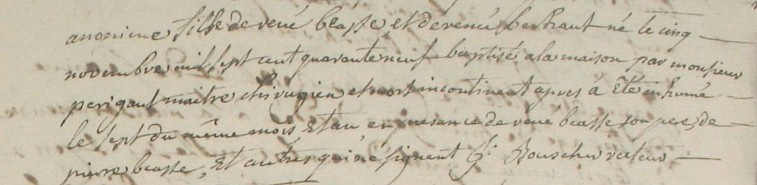 anonime fille de rené beasse et de renée berhaut né le cinq
novembre mil sept cent quarente neuf baptisé a la maison par monsieur
perigaut maitre chirurgien et mort incontinent apres à Eté inhumé
le sept du même mois et an en presence de rené beasse son pere, de
pierre beasse, Et autres qui ne signent G. Bouscher recteur